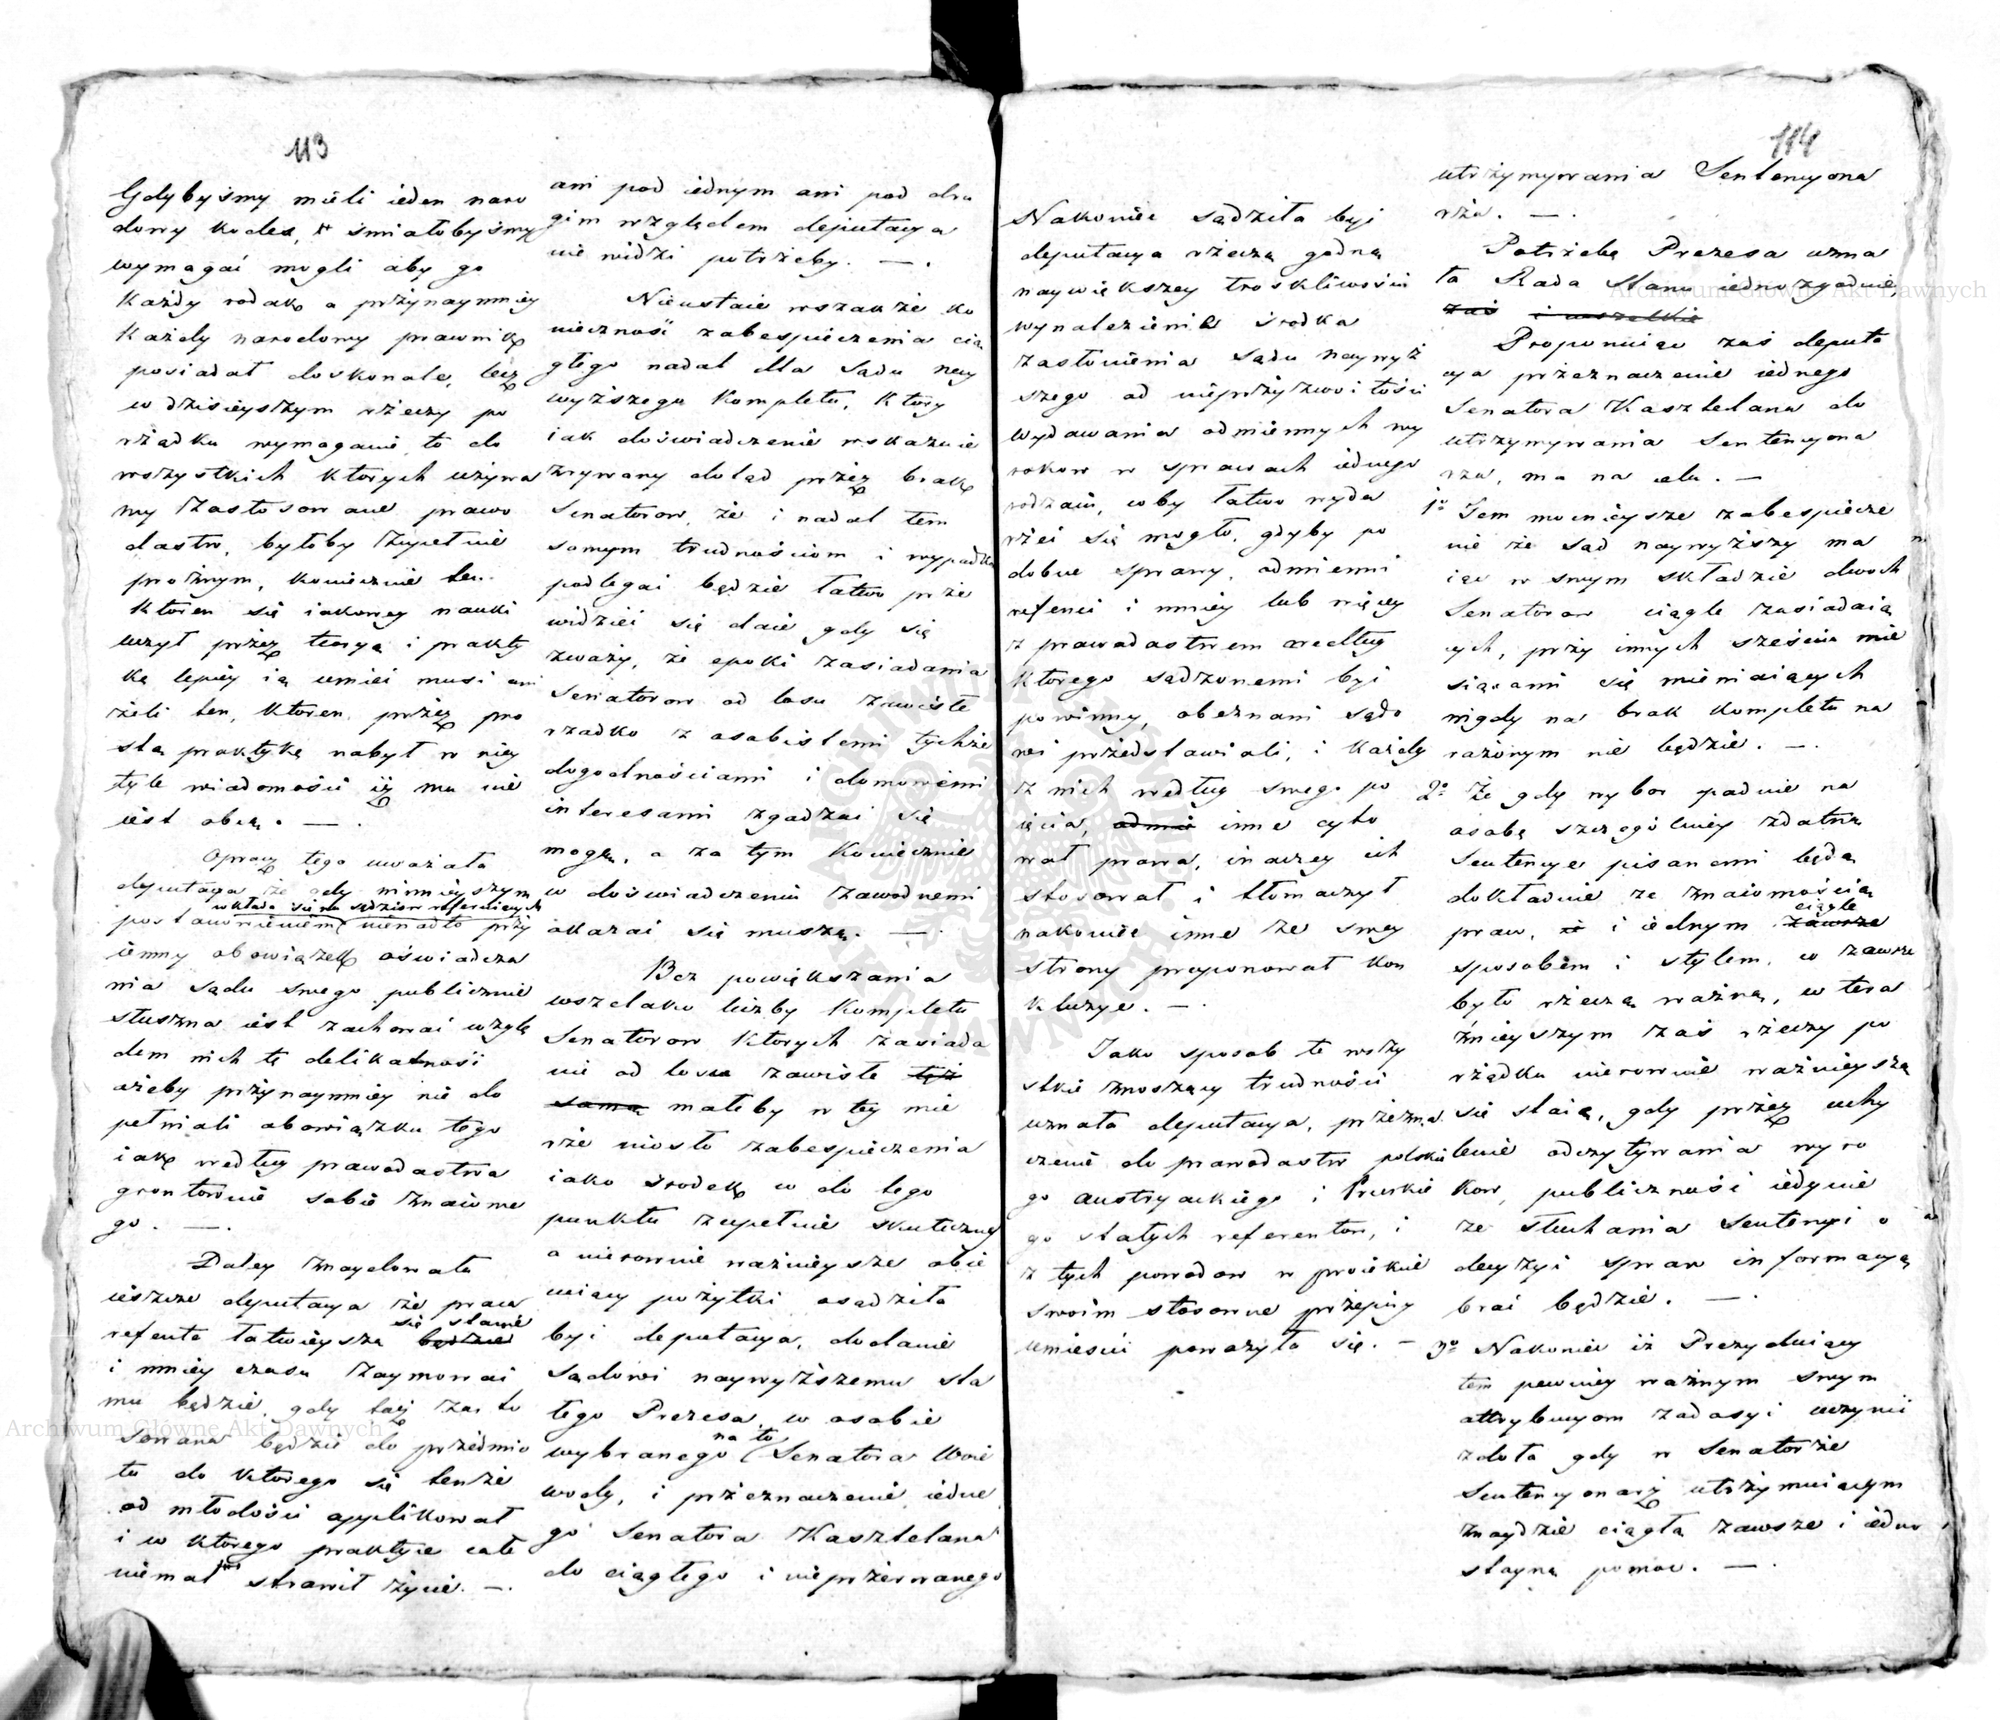 113
Gdybyśmy mieli ieden naro
dowy kodex, śmiałobyśmy
wymagać mogli aby go
każdy rodak a przynaymniey
każdy narodowy prawnik
posiadał doskonale, lecz
w dzisieyszym rzeczy po
rządku wymaganie to do
wszystkich ktorych używa
my zastosowane prawo
dastw, byłoby zupełnie
prożnym, koniecznie ten
ktoren się iakowey nauki
uczył przez teoryą i prakty
kę lepiey ią umieć musi ani
żeli ten, ktoren przez pro
stą praktykę nabył w niey
tyle wiadomości iż mu nie
iest obcą. —.
Oprocz tego uważała
deputacya że gdy ninieyszym
wkłada się na sędziow referuiących
postanowieniem nienadto przy
iemny obowiązek oświadcza
nia sądu swego publicznie
słuszna iest zachować wzglę
dem nich tę delikatność
ażeby przynaymniey nie do
pełniali obowiązku tego
iak według prawodastwa
grontownie sobie znaiome
go. —.
Daley znaydowała
ieszcze deputacya że praca
się stanie
referenta łatwieysza będzie
i mniey czasu zaymować
mu będzie, gdy taż zasto
sowana będzie do przedmio
tu do ktorego się tenże
od młodości applikował
i w ktorego praktyce całe
niemal strawił życie. —.
ani pod iednym ani pod dru
gim względem deputacya
nie widzi potrzeby. —.
Nieustaie wszakże ko
nieczność zabespieczenia cią
głego nadal dla Sądu nay
wyższego kompletu, ktory
iak doświadczenie wskazuie
zrywany dotąd przez brak
Senatorow, że i nadal tem
samym trudnościom i wypadko
podlegać będzie łatwo prze
widzieć się daie gdy się
zważy, że epoki zasiadania
Senatorow od losu zawisłe
rzadko z osobistemi tychże
dogodnościami i domowemi
interesami zgadzać się
mogą, a za tym koniecznie
w doświadczeniu zawodnemi
okazać się muszą. —.
Bez powiększania
wszelako liczby kompletu
Senatorow ktorych zasiada
nie od losu zawisłe też
samą małeby w tey mie
rze niosło zabespieczenia
iako środek w do tego
punktu zupełnie skuteczny
a nierownie ważnieysze obie
cuiący pożytki osądziła
być deputacya, dodanie
Sądowi naywyższemu sta
łego Prezesa, w osobie
na to
wybranego Senatora Woie
wody, i przeznaczenie iedne
go Senatora Kasztelana
do ciągłego i nieprzerwanego
114
Nakoniec sądziła być
deputacya rzeczą godną
naywiększey troskliwości
wynalezienie środka
zasłonienia Sądu naywyż
szego od nieprzyzwoitości
wydawania odmiennych wy
rokow w sprawach iednego
rodzaiu, coby łatwo wyda
rzeć się mogło, gdyby po
dobne sprawy, odmienni
referenci i mniey lub więcey
z prawodastwem według
ktorego sądzonemi być
powinny, obeznani sądo
wi przedstawiali, i każdy
z nich według swego po
ięcia, odmie inne cyto
wał prawa, inaczey ich
stosował i tłomaczył
nakoniec inne ze swey
strony proponował kon
kluzye. —.
Jako sposob te wszy
stkie znoszący trudności
uznała deputacya, przezna
czenie do prawodastw polskie
go austryackiego i Pruskie
go stałych referentow, i
z tych powodow w proiekcie
swoim stosowne przepisy
umieścić poważyła się. —
utrzymywania Sentencyona
rza. —.
Potrzebę Prezesa uzna
ła Rada Stanu iednozgodnie,
zaś i wszelkie
Proponuiąc zaś deputa
cya przeznaczenie iednego
Senatora Kasztelana do
utrzymywania Sentencyona
rza, ma na celu. —
1o Tem mocnieysze zabespiecze
nie że Sąd naywyższy ma
iąc w swym składzie dwoch
Senatorow ciągle zasiadaią
cych, przy innych sześciu mie
siącami się mieniaiących
nigdy na brak kompletu na
rażonym nie będzie. —.
2o Że gdy wybor padnie na
osobę szczegolniey zdatną
Sentencye pisanemi będą
dokładnie ze znaiomością
ciągle
praw, i iednym zawsze
sposobem i stylem, co zawsze
było rzeczą ważną, w tera
źnieyszym zaś rzeczy po
rządku nierownie ważnieyszą
się staie, gdy przez uchy
lenie odczytywania wyro
kow, publiczność iedynie
ze słuchania Sentencyi o
decyzyi spraw informacyą
brać będzie. —.
3o Nakoniec iż Prezyduiący
tem pewniey ważnym swym
attrybucyom zadosyć uczynić
zdoła gdy w Senatorze
Sentencyonarz utrzymuiącym
znaydzie ciągłą zawsze i iedno
stayną pomoc. —.